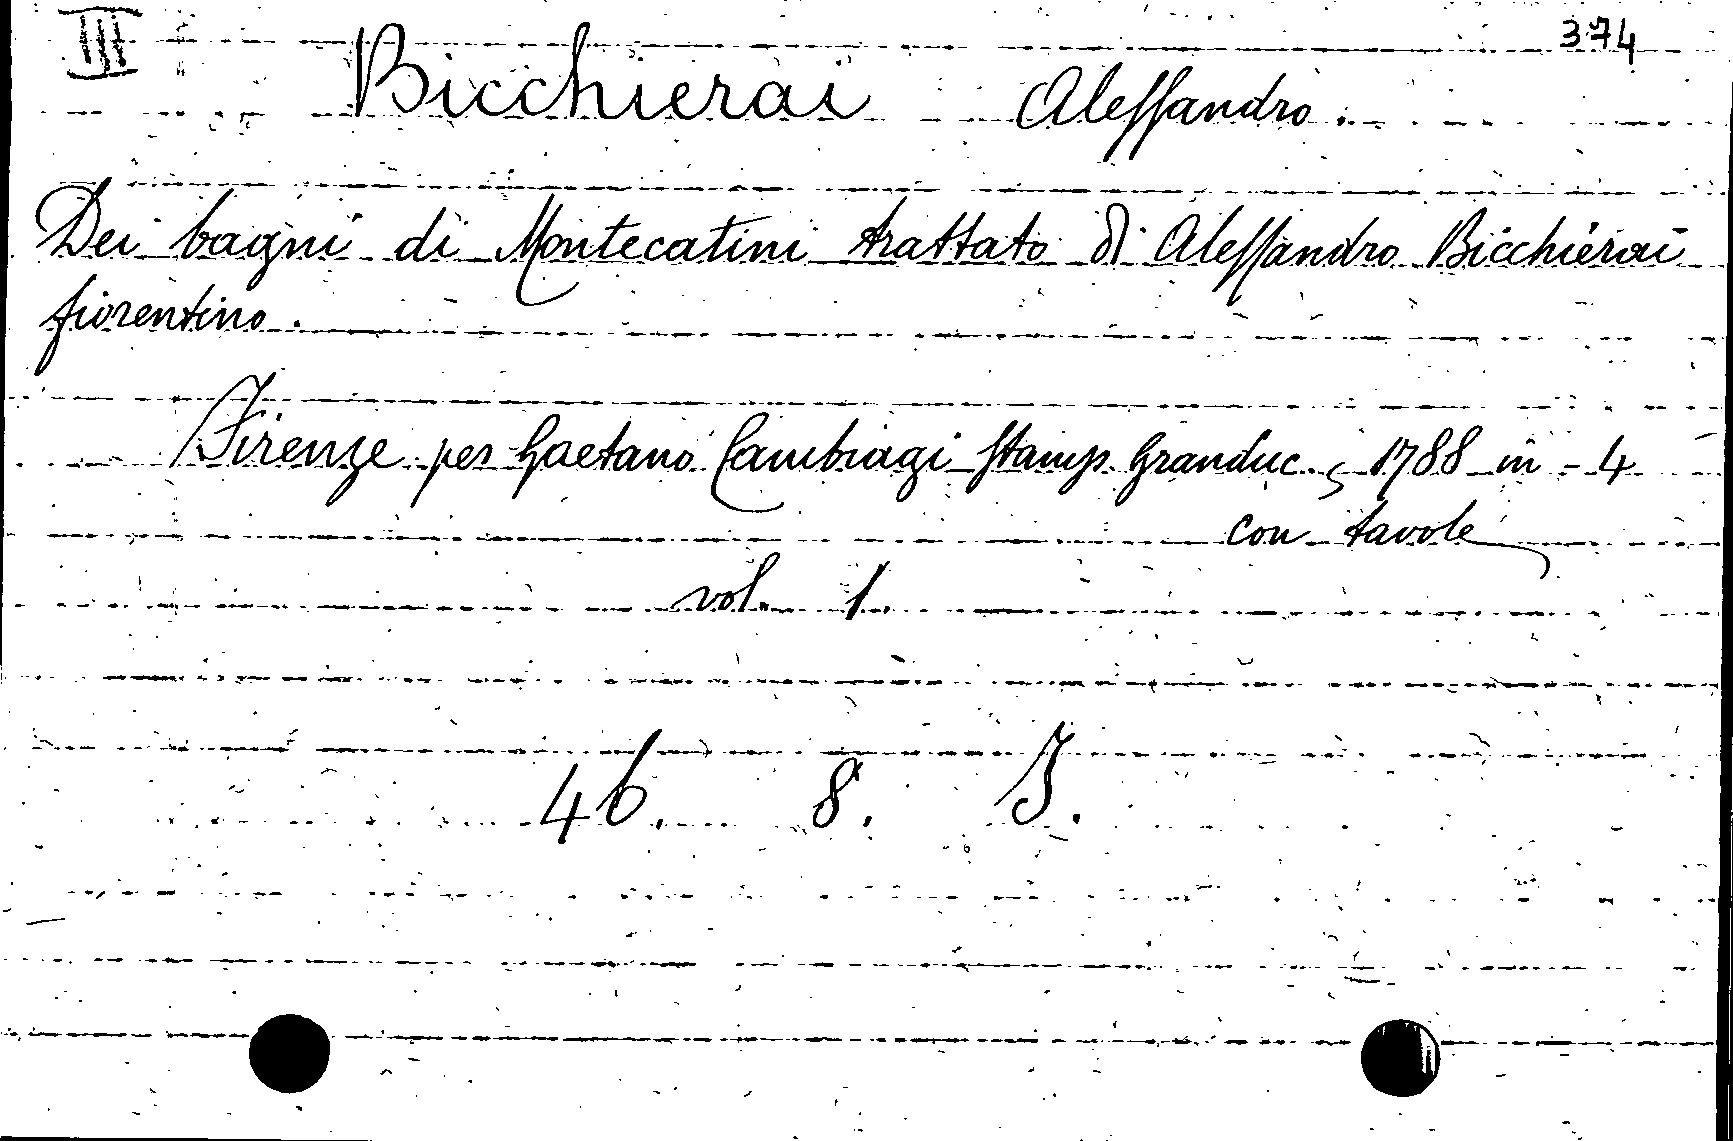 III 374
Bicchierai Alessandro.
Dei bagni di Montecatini trattato di Alessandro Bicchierai
fiorentino.
Firenze per Gaetano Cambiagi Stamp. Granduc., 1788 in-4
con tavole
vol. 1.
46. 8. J.